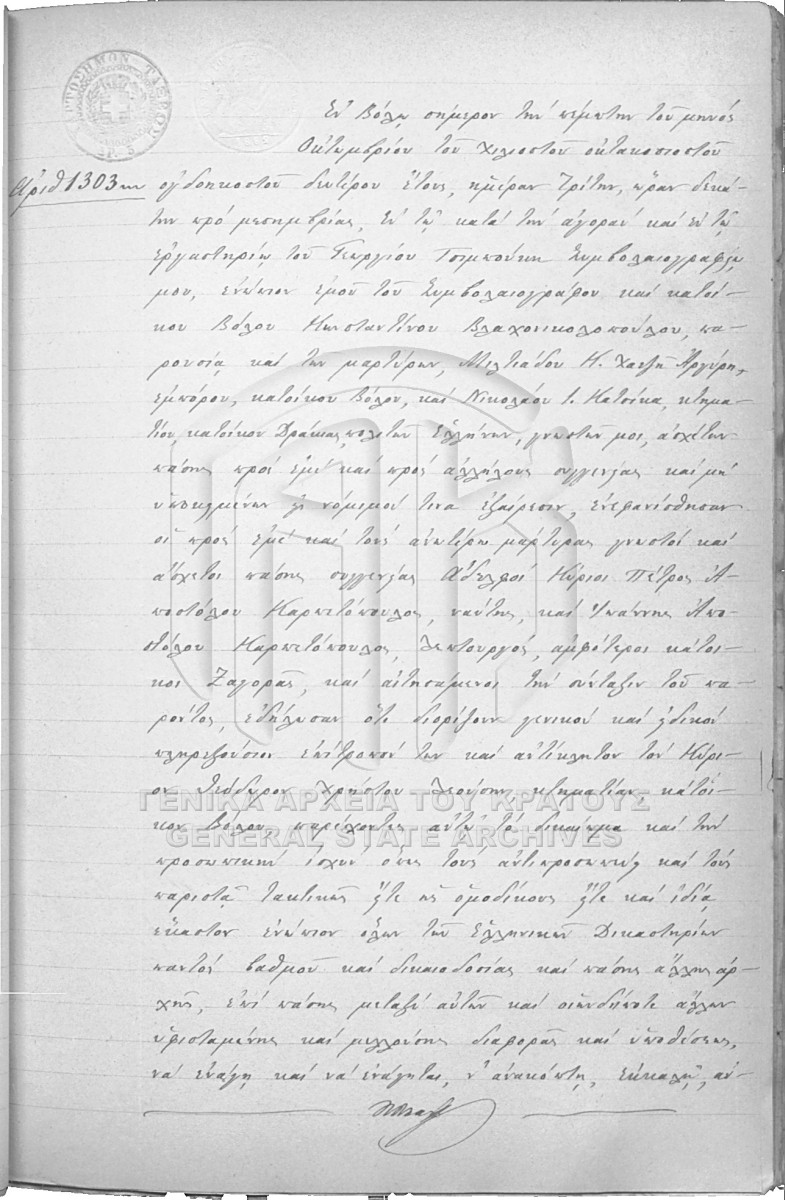 ΧΑΡΤΟΣΗΜΟΝ ΠΑΓΙΟΥ
ΔΡ. 3
Ἐν Βόλῳ σήμερον τὴν πέμπτην τοῦ μηνὸς
Ὀκτωμβρίου τοῦ χιλιοστοῦ ὀκτακοσιοστοῦ
Ἀριθ 1303 ογδοηκοστοῦ δευτέρου ἔτους, ἡμέραν Τρίτην, ὥραν δεκά-
την πρὸ μεσημβρίας, ἐν τῷ κατὰ τὴν ἀγορὰν καὶ ἐν τῷ
ἐργαστηρίῳ τοῦ Γεωργίου Τσιμπούκη Συμβολαιογραφείῳ
μου, ἐνώπιον ἐμοῦ τοῦ Συμβολαιογράφου καὶ κατοί-
κου Βόλου Κωνσταντίνου Βλαχονικολοπούλου, πα-
ρουσίᾳ καὶ τῶν μαρτύρων, Μιλτιάδου Κ. Χατζῆ Ἀργύρη,
ἐμπόρου, κατοίκου Βόλου, καὶ Νικολάου Ι. Κατσίκα, κτημα-
τίου, κατοίκου Δράκιας, πολιτῶν Ἑλλήνων, γνωστῶν μοι, ἀσχέτων
πάσης πρὸς ἐμὲ καὶ πρὸς ἀλλήλους συγγενείας καὶ μὴ
ὑποκειμένων εἰς νόμιμόν τινα ἐξαίρεσιν, ἐνεφανίσθησαν
οἱ πρὸς ἐμὲ καὶ τοὺς ἀνωτέρω μάρτυρας γνωστοὶ καὶ
ἄσχετοι πάσης συγγενείας Ἀδελφοὶ Κύριοι Πέτρος Ἀ-
ποστόλου Καρπετόπουλος, ναύτης, καὶ Ἰωάννης Ἀπο-
στόλου Καρπετόπουλος, λεπτουργός, ἀμφότεροι κάτοι-
κοι Ζαγορᾶς, καὶ αἰτησάμενοι τὴν σύνταξιν τοῦ πα-
ρόντος, ἐδήλωσαν ὅτι διορίζουν γενικὸν καὶ εἰδικὸν
πληρεξούσιον ἐπίτροπόν των καὶ ἀντίκλητον τὸν Κύρι-
ον Θεόδωρον Χρήστου κτηματίαν κάτοι-
κον Βόλου, παρέχοντες αὐτῷ τὸ δικαίωμα καὶ τὴν
προσωπικὴν ἰσχὺν τοὺς ἀντιπροσωπεύῃ καὶ τοὺς
παριστᾷ τακτικῶς εἴτε ὡς ὁμοδίκους εἴτε καὶ ἰδίᾳ
ἕκαστον ἐνώπιον ὅλων τῶν Ἑλληνικῶν Δικαστηρίων
παντὸς βαθμοῦ καὶ δικαιοδοσίας καὶ πάσης ἄλλης ἀρ-
χῆς, ἐπὶ πάσης μεταξὺ αὐτῶν καὶ οἱωνδήποτε ἄλλων
ὑφισταμένης καὶ μελλούσης διαφορᾶς καὶ ὑποθέσεως,
νὰ ἐνάγῃ καὶ νὰ ἐνάγηται, ν' ἀνακόπτῃ, ἐκκαλῇ, ἀν-
ΓΕΝΙΚΑ ΑΡΧΕΙΑ ΤΟΥ ΚΡΑΤΟΥΣ
GENERAL STATE ARCHIVES